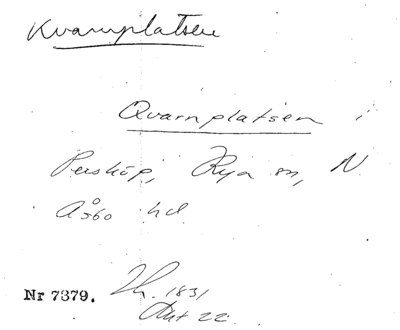 Kvarnplatsen
Qvarnplatsen i
Perstorp, Rya sn, N.
Åsbo hd
Nr 7379. Th. 1831
Akt 22